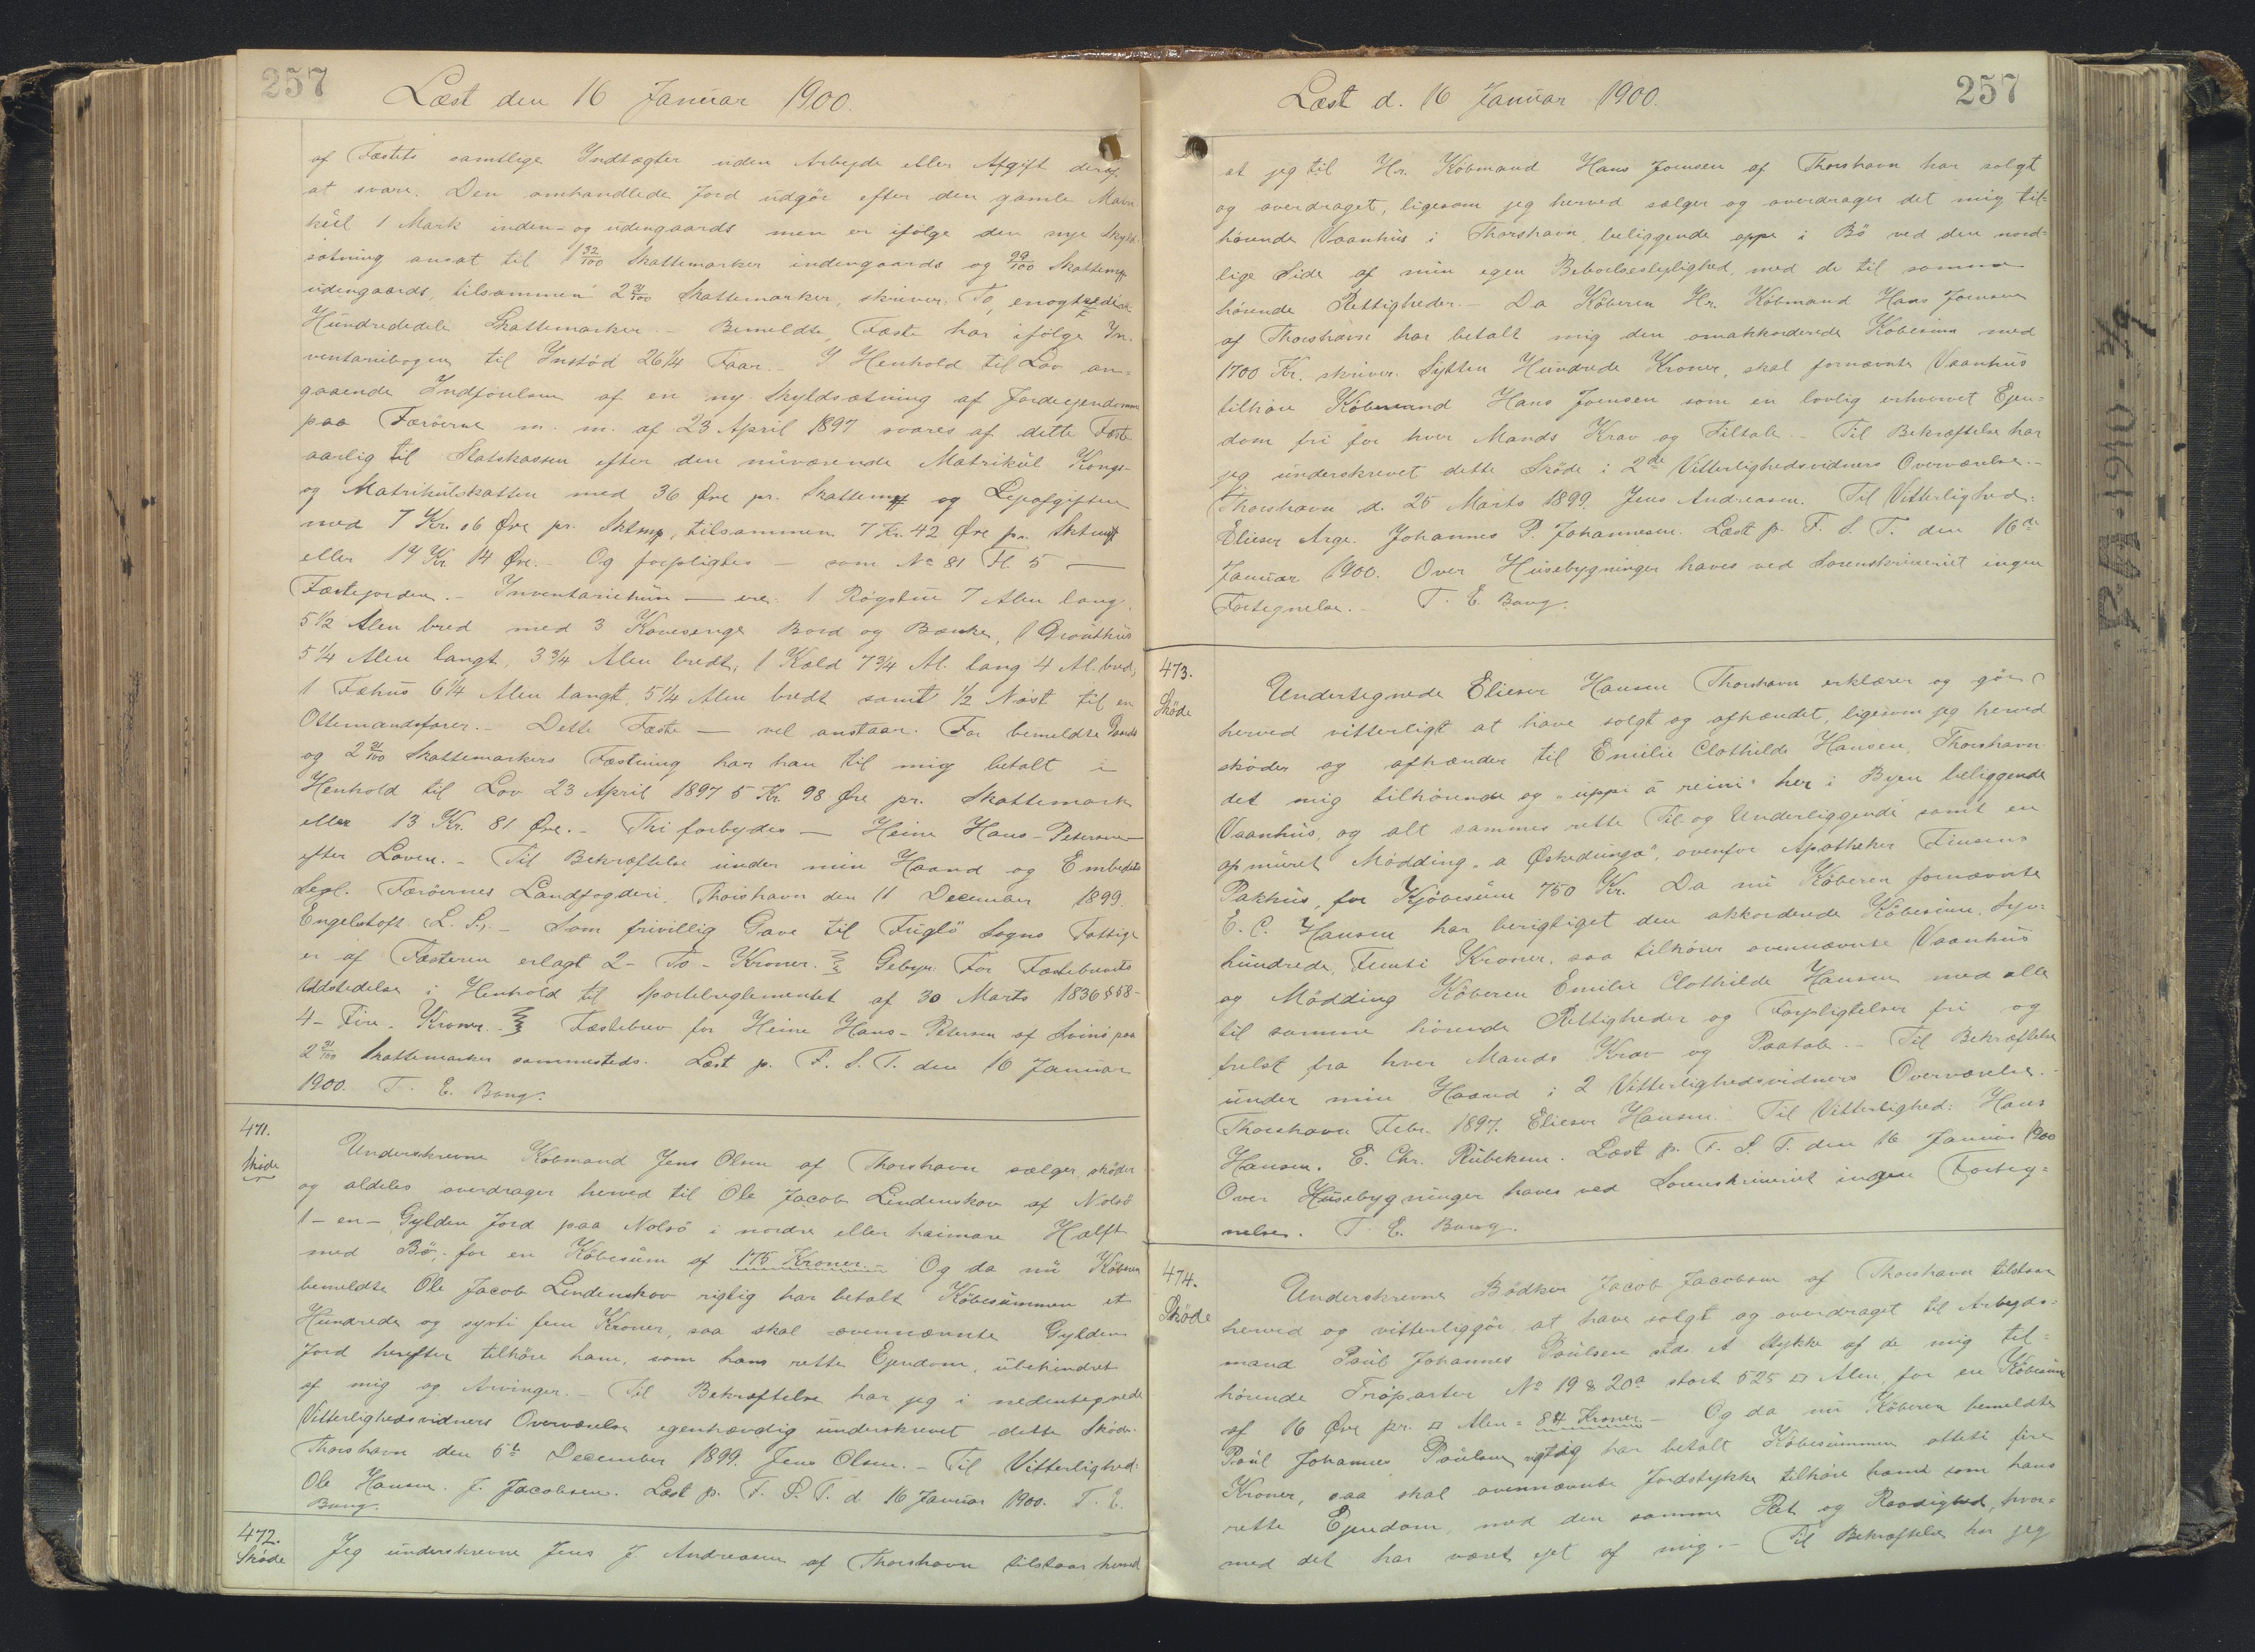 257
Læst den 16 Januar 1900.
af Fæstets samtlige Indtægter uden Arbejde eller Afgift deraf
at svare. Den omhandlede Jord udgør efter den gamle Matri
kul 1 Mark inden- og udengaards men er ifølge den nye Skyld-
sætning ansat til 1 32/100 Skattemarker indengaards og 99/100 Skattemk
udengaards, tilsammen 2 31/100 Skattemarker, skriver: To, enogtredive
Hundrededele Skattemarker. - Bemeldte Fæste har ifølge In-
ventariebogen til Instød 26 1/4 Faar. - I Henhold til Lov an-
gaaende Indførelsen af en ny Skyldsætning af Jordejendomme
paa Færöerne m. m. af 23 April 1897 svares af dette Fæste
aarlig til Statskassen efter den nuværende Matrikul Kongs-
og Matrikulskatten med 36 Øre pr. Skattemk og Lejeafgiften
med 7 Kr. 06 Øre pr. Sktmk, tilsammen 7 Kr. 42 Øre pr. Sktmk
eller 17 Kr 14 Øre. - Og forpligtes — som No 81 Fl 5 —
Fæstejorden. - Inventariehuse — ere: 1 Røgstue 7 Alen lang,
5 1/2 Alen bred med 3 Kovesenge Bord og Bænke, 1 Grouthus
5 1/4 Alen langt, 3 3/4 Alen bredt, 1 Kæld 7 3/4 Al. lang 4 Al. bred,
1 Fæhus 6 1/4 Alen langt, 5 1/4 Alen bredt samt 1/2 Nøst til en
Ottemandsfarer. - Dette Fæste — vel anstaar. For bemeldte Lands
og 2 31/100 Skattemarkers Fæstning har han til mig betalt i
Henhold til Lov 23 April 1897 5 Kr. 98 Øre pr. Skattemark
eller 13 Kr. 81 Øre. - Thi forbydes — Heine Hans-Petersen —
efter Loven. - Til Bekræftelse under min Haand og Embedets
Segl. Færöernes Landfogderi, Thorshavn den 11 December 1899.
Engelstoft (L. S.). - Som frivillig Gave til Fuglö Sogns Fattige
er af Fæsteren erlagt 2 - To - Kroner. Gebyr: For Fæstebrevets
Udstedelse i Henhold til Sportelreglementet af 30 Marts 1836 § 58 -
4 - Fire - Kroner. Fæstebrev for Heine Hans-Petersen af Svinö paa
2 31/100 Skattemarker sammesteds. Læst p. F. S. T. den 16 Januar
1900. T. E. Bang.
471.
Skøde
Underskrevne Købmand Jens Olsen af Thorshavn sælger, skøder
og aldeles overdrager herved til Ole Jacob Lindenskov af Nolsö
1 - en - Gylden Jord paa Nolsö i nordre eller heimare Hælft
med Bö, for en Købesum af 175 Kroner. - Og da nu Køberen
bemeldte Ole Jacob Lindenskov rigtig har betalt Købesummen et
Hundrede og syvti fem Kroner, saa skal ovennævnte Gylden
Jord herefter tilhøre ham, som hans rette Ejendom, ubehindret
af mig og Arvinger. - Til Bekræftelse har jeg i nedentegnede
Vitterlighedsvidners Overværelse egenhændig underskrevet dette Skøde.
Thorshavn den 5te December 1899. Jens Olsen. - Til Vitterlighed:
Ole Hansen. J. Jacobsen. Læst p. F. S. T. d 16 Januar 1900. T. E.
Bang.
472.
Skøde
Jeg underskrevne Jens J. Andreasen af Thorshavn tilstaar herved
257
Læst d. 16 Januar 1900.
at jeg til Hr. Købmand Hans Joensen af Thorshavn har solgt
og overdraget, ligesom jeg herved sælger og overdrager det mig til-
hørende Vaanhus i Thorshavn, beliggende oppe i Bö ved den nord-
lige Side af min egen Beboelseslejlighed, med de til samme
hørende Rettigheder. - Da Køberen Hr. Købmand Hans Joensen
af Thorshavn har betalt mig den omakkorderede Købesum med
1700 Kr. skriver: Sytten Hundrede Kroner, skal fornævnte Vaanhus
tilhøre Købmand Hans Joensen som en lovlig erhvervet Ejen-
dom fri for hver Mands Krav og Tiltale. - Til Bekræftelse har
jeg underskrevet dette Skøde i 2de Vitterlighedsvidners Overværelse. -
Thorshavn d. 25 Marts 1899. Jens Andreasen. Til Vitterlighed:
Elieser Arge. Johannes P. Johannesen. Læst p. F. S. T. den 16de
Januar 1900. Over Husebygninger haves ved Sorenskriveriet ingen
Fortegnelse. - T. E. Bang.
473.
Skøde
Undertegnede Elieser Hansen Thorshavn erklærer og gör
herved vitterligt at have solgt og afhændet, ligesom jeg herved
skøder og afhænder til Emilie Clothilde Hansen, Thorshavn
det mig tilhørende og "uppi á reini" her i Byen beliggende
Vaanhus, og alt sammes rette Til og Underliggende samt en
opmuret Mödding "a Øskedunga", ovenfor Apotheker Finsens
Pakhus, for Kjøbesum 750 Kr. Da nu Køberen fornævnte
E. C. Hansen har berigtiget den akkorderede Købesum, Syv-
hundrede, Femti Kroner, saa tilhører ovennævnte Vaanhus
og Mödding Køberen Emilie Clothilde Hansen med alle
til samme hörende Rettigheder og Forpligtelser fri og
frelst fra hver Mands Krav og Paatale. - Til Bekræftelse
under min Haand i 2 Vitterlighedsvidners Overværelse. -
Thorshavn Febr. 1897. Elieser Hansen. Til Vitterlighed: Hans
Hansen. E. Chr. Rubeksen. Læst p. F. S. T. den 16 Januar 1900
Over Husebygninger haves ved Sorenskriveriet ingen Forteg-
nelse. T. E. Bang.
474.
Skøde
Underskrevne Bödker Jacob Jacobsen af Thorshavn tilstaar
herved og vitterliggör at have solgt og overdraget til Arbejds-
mand Poul Johannes Poulsen stds. et Stykke af de mig til-
hörende Tröparter No 19 & 20a stort 525 □ Alen, for en Købesum
af 16 Øre pr. □ Alen = 84 Kroner. - Og da nu Køberen bemeldte
Poul Johannes Poulsen rigtig har betalt Købesummen otteti fire
Kroner, saa skal ovennævnte Jordstykke tilhøre ham som hans
rette Ejendom, med den samme Ret og Raadighed, hvor-
med det har været ejet af mig. - Til Bekræftelse har jeg